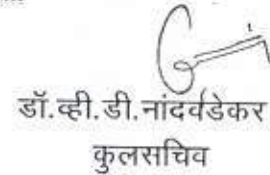 डॉ.व्ही.डी.नांदर्वडेकर
कुलसचिव